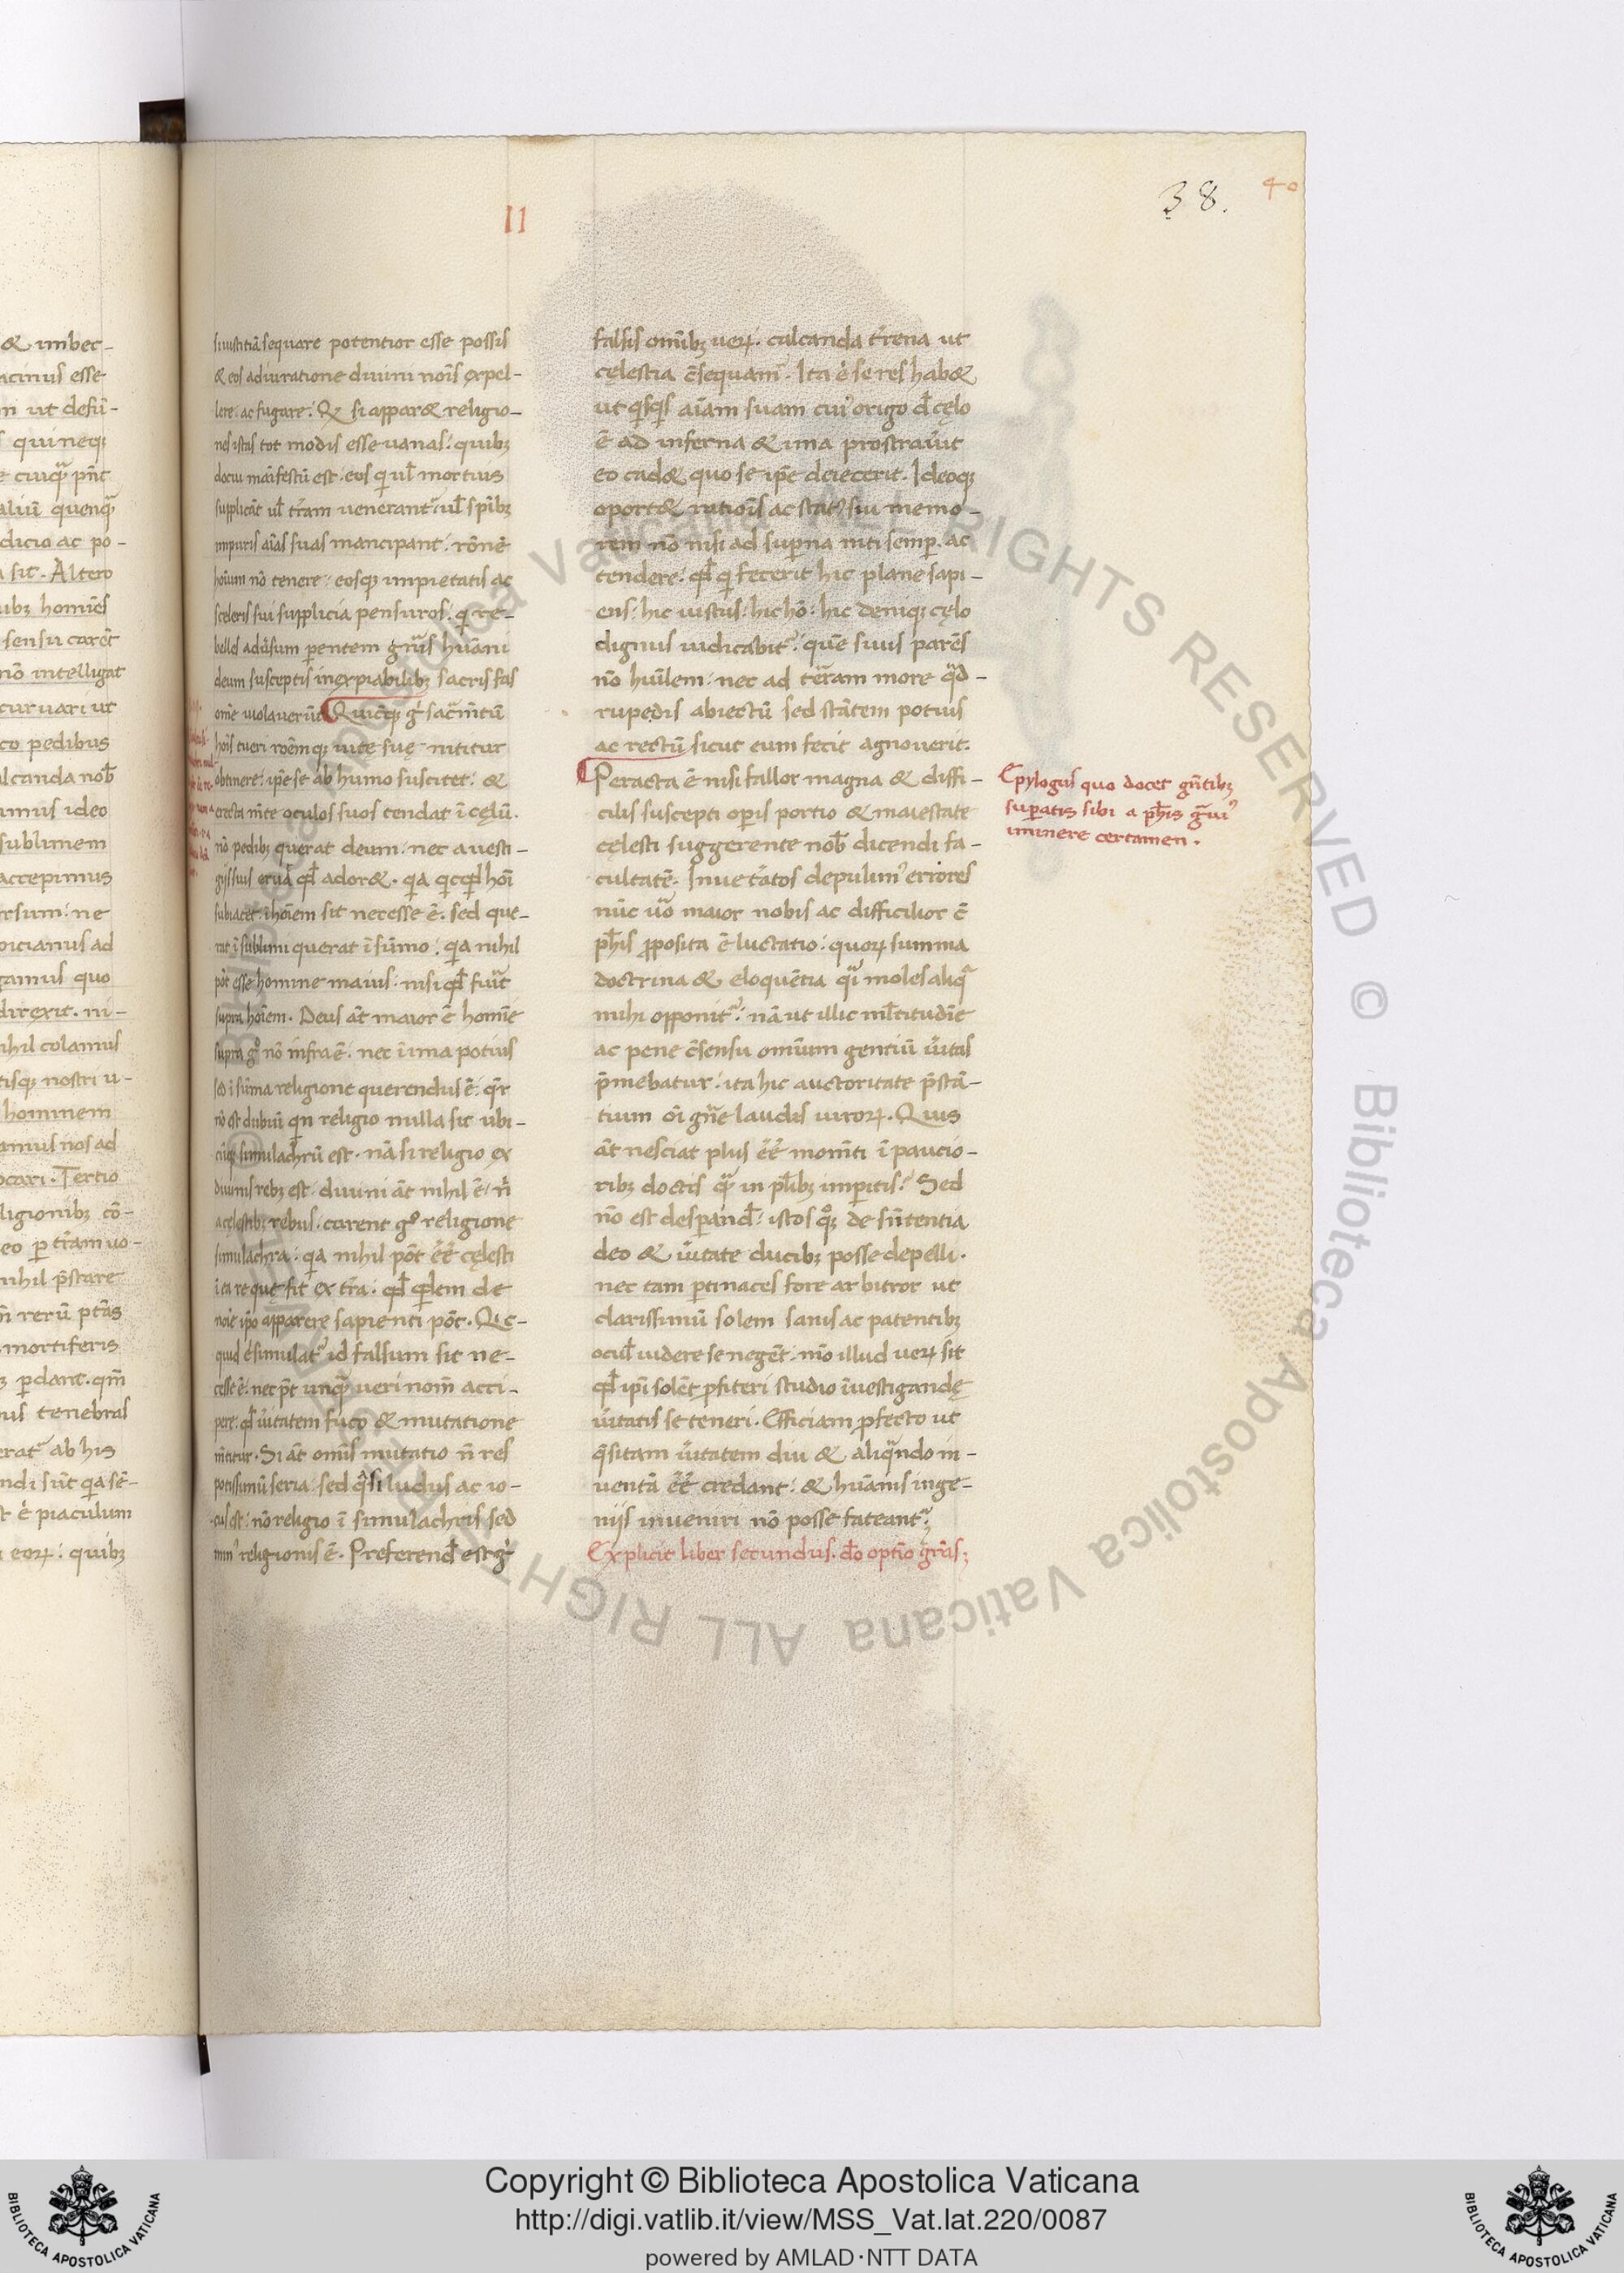 II
38.
40
& imbec-
acinus esse
n ut defū-
quineqꝫ
e cuiqᷓ pn̄t
aliū quenqᷓ
dicio ac po-
sit. Altero
ibꝫ homīes
sensu carēt
nō intelligat
curuari ut
co pedibus
alcanda nob̄
imus ideo
sublimem
accepimus
rsum: ne
picianus ad
gamus quo
direxit. ni-
ihil colamus
tisqꝫ nostri u-
hominem
amus nos ad
ocari. Tertio
ligionibꝫ cō-
eo ꝑ tr̄am uo-
nihil p̄stare
rerū ptās
mortiferis
ꝑdant. qm̄
us tenebras
erat᷑ ab his
ndi sūt qa sē-
ė piaculum
eoꝝ: quibꝫ
iustitiā sequare potentior esse possis
& eos adiuratione diuini noīs expel-
lere: ac fugare: Qđ si appar& religio-
nes istas tot modis esse uanas: quibꝫ
docui maīfestū est. eos qi ul̄ mortuis
supplicāt ul̄ tr̄am uenerant᷑: ul̄ spībꝫ
impuris aīas suas mancipant: rōnē
hoīum nō tenere: eosqꝫ impietatis ac
sceleris sui supplicia pensuros. qi re-
belles adūsum parentem gn̄is hūani
deum susceptis inexpiabilibꝫ sacris fas
om̄e uiolauerūt. Quicūqꝫ gͥ sacm̄tū
hoīs tueri roēmqꝫ nature suę nititur
obtinere: ipse se ab humo suscitet: &
erecta mēte oculos suos tendat ī cęlū.
nō pedibꝫ querat deum: nec a uesti-
gijs suis eruat qđ ador&. qa qicqđ hoī
subiacet. īhoīem sit necesse ē. sed que-
rat ī sublimi querat ī sūmo: qa nihil
pōt esse homine maius: nisi qđ fu͛it
supra hoīem. Deus āt maior ē homīe
supra gͦ nō infra ē. nec ī ima potius
sed ī sūma religione querendus ē. q̄r
nō est dubiū qn religio nulla sit ubi-
cūqꝫ simulachrū est. nā si religio ex
diuinis rebꝫ est: diuini āt nihil ē: n̄
a cęlestibꝫ rebus. carent gͦ religione
simulachra: qa nihil pōt eē̄ cęlesti
ita re quę fit ex tr̄a: qđ qidem de
noīe ipo apparere sapienti pōt. Qic-
quid ė simulat᷑ id falsum sit ne-
cesse ē: nec pōt unqᷓ ueri nom̄ acci-
pere: qđ ūitatem fuco & imitatione
mētitur. Si āt omīs imitatio n̄ res
potissimū seria: sed qᷓsi ludus ac io-
cus est: nō religio ī simulachris sed
mim᷒ religionis ē. Preferend̄ est gͥ
falsis omībꝫ ueꝝ. calcanda trͤena ut
cęlestia c̄sequam᷑. Ita ė se res hab&
ut qisqis aīam suam cui᷒ origo đ cęlo
ē ad inferna & ima prostrauͥt
eo cad& quo se ip̄e deiecerit. Ideoqꝫ
oport& ratiōis ac stat᷒ sui memo-
rem nō nisi ad superna niti semꝑ. ac
tendere: qđ qi fecerit hic plane sapi-
ens: hic iustus: hic hō: hic deniqꝫ cęlo
dignus iudicabit᷑: quē suus parēs
nō huīlem: nec ad terram more qᷓd-
rupedis abiectū sed stātem potius
ac rectū sicut eum fecit agnouerit.
Peracta ē nisi fallor magna & diffi-
cilis suscepti oꝑis portio & maiestate
cęlesti suggerente nob̄ dicendi fa-
cultatē. Inueͭatos depulim᷒ errores
nūc uͦ maior nobis ac difficilior ē
ph̄is ꝓposita ē luctatio: quoꝝ summa
doctrina & eloquētia qᷓi moles aliqᷓ
mihi opponit᷑: nā ut illic ml̄titudīe
ac pene c̄sensu omīum gentiū ūitas
p̄mebatur: ita hic auctoritate p̄stā-
tium oī gn̄e laudis uiroꝝ. Quis
āt nesciat plus eē̄ momēti ī paucio-
ribꝫ doctis qᷓ in pl̄ibꝫ imꝑitis? Sed
nō est desꝑand̄: istos qͦqꝫ de sn̄tentia
deo & ūitate ducibꝫ posse depelli.
nec tam ꝑtinaces fore arbitror ut
clarissimū solem sanis ac patentibꝫ
ocul̄ uidere se negēt. mͦ illud ueꝝ sit
qđ ipi solēt ꝓfiteri studio īuestigandę
ūitatis se teneri. Efficiam ꝓfecto ut
q̄sitam ūitatem diu & aliqᷓndo in-
uentā eē̄ credant: & hūanis inge-
nijs inueniri nō posse fateant᷑;
Explicit liber secundus. dō optīo grās;
Epylogus quo docet gn̄tibꝫ
suꝑatis sibi a ph̄is gᷓui᷒
iminere certamen.
Copyright © Biblioteca Apostolica Vaticana
http://digi.vatlib.it/view/MSS_Vat.lat.220/0087
powered by AMLAD·NTT DATA
BIBLIOTECA APOSTOLICA VATICANA
BIBLIOTECA APOSTOLICA VATICANA
© Biblioteca Apostolica Vaticana ALL RIGHTS RESERVED © Biblioteca Apostolica Vaticana ALL RIGHTS RESERVED